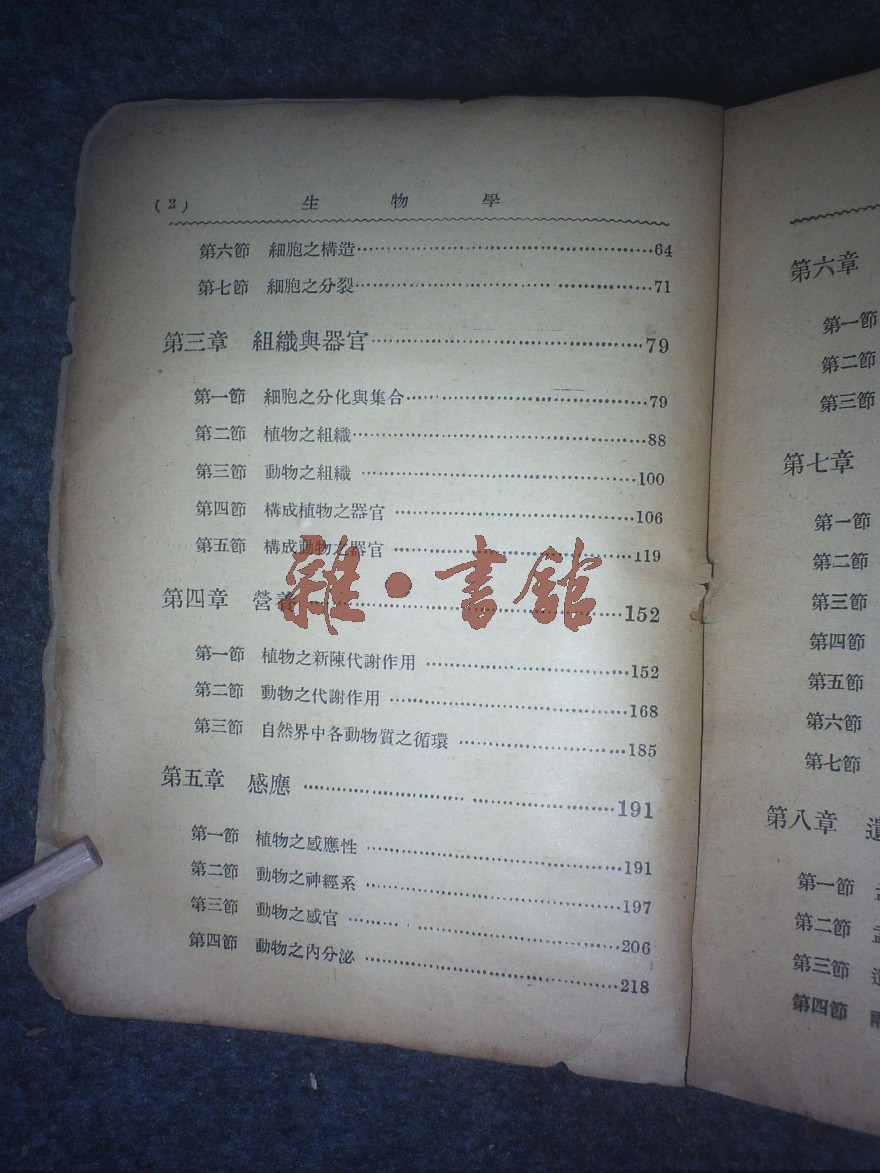 (2) 生 物 學
第六節 細胞之構造……64
第七節 細胞之分裂……71
第三章 組織與器官……79
第一節 細胞之分化與集合……79
第二節 植物之組織……88
第三節 動物之組織……100
第四節 構成植物之器官……106
第五節 構成動物之器官……119
雜·書館
第四章 營養……152
第一節 植物之新陳代謝作用……152
第二節 動物之代謝作用……168
第三節 自然界中各動物質之循環……185
第五章 感應……191
第一節 植物之感應性……191
第二節 動物之神經系……197
第三節 動物之感官……206
第四節 動物之內分泌……218
第六章
第一節
第二節
第三節
第七章
第一節
第二節
第三節
第四節
第五節
第六節
第七節
第八章
第一節
第二節
第三節
第四節